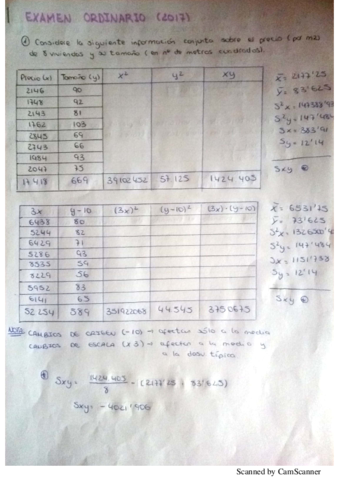 EXAMEN ORDINARIO (2017)
① Considere la siguiente información conjunta sobre el precio (por m2)
de 8 viviendas y su tamaño (en nº de metros cuadrados).
Precio (x) Tamaño (y) x² y² xy
2146 90
1748 92
2143 81
1762 103
69
2743 66
1984 93
2047 75
17418 669 39102452 57.125 1424.405
x̄ = 2177'25
ȳ = 83'625
S²y = 147'484
Sx = 383'91
Sy = 12'14
Sxy
3x y-10 (3x)² (y-10)² (3x)·(y-10)
6438 80
5244 82
6429 71
5286 93
59
8229 56
5952 83
6141 65
52254 589 351922068 44545 3750675
x̄ = 6531'75
ȳ = 73'625
S²y = 147'484
Sx = 1151'753
Sy = 12'14
Sxy
NOTA: CAMBIOS DE ORIGEN (-10) → afectan sólo a la media
CAMBIOS DE ESCALA (x3) → afectan a la media y
a la desv típica
Sxy = 1424.405 / 8 - (2177'25 · 83'625)
Sxy = -4021'906
Scanned by CamScanner